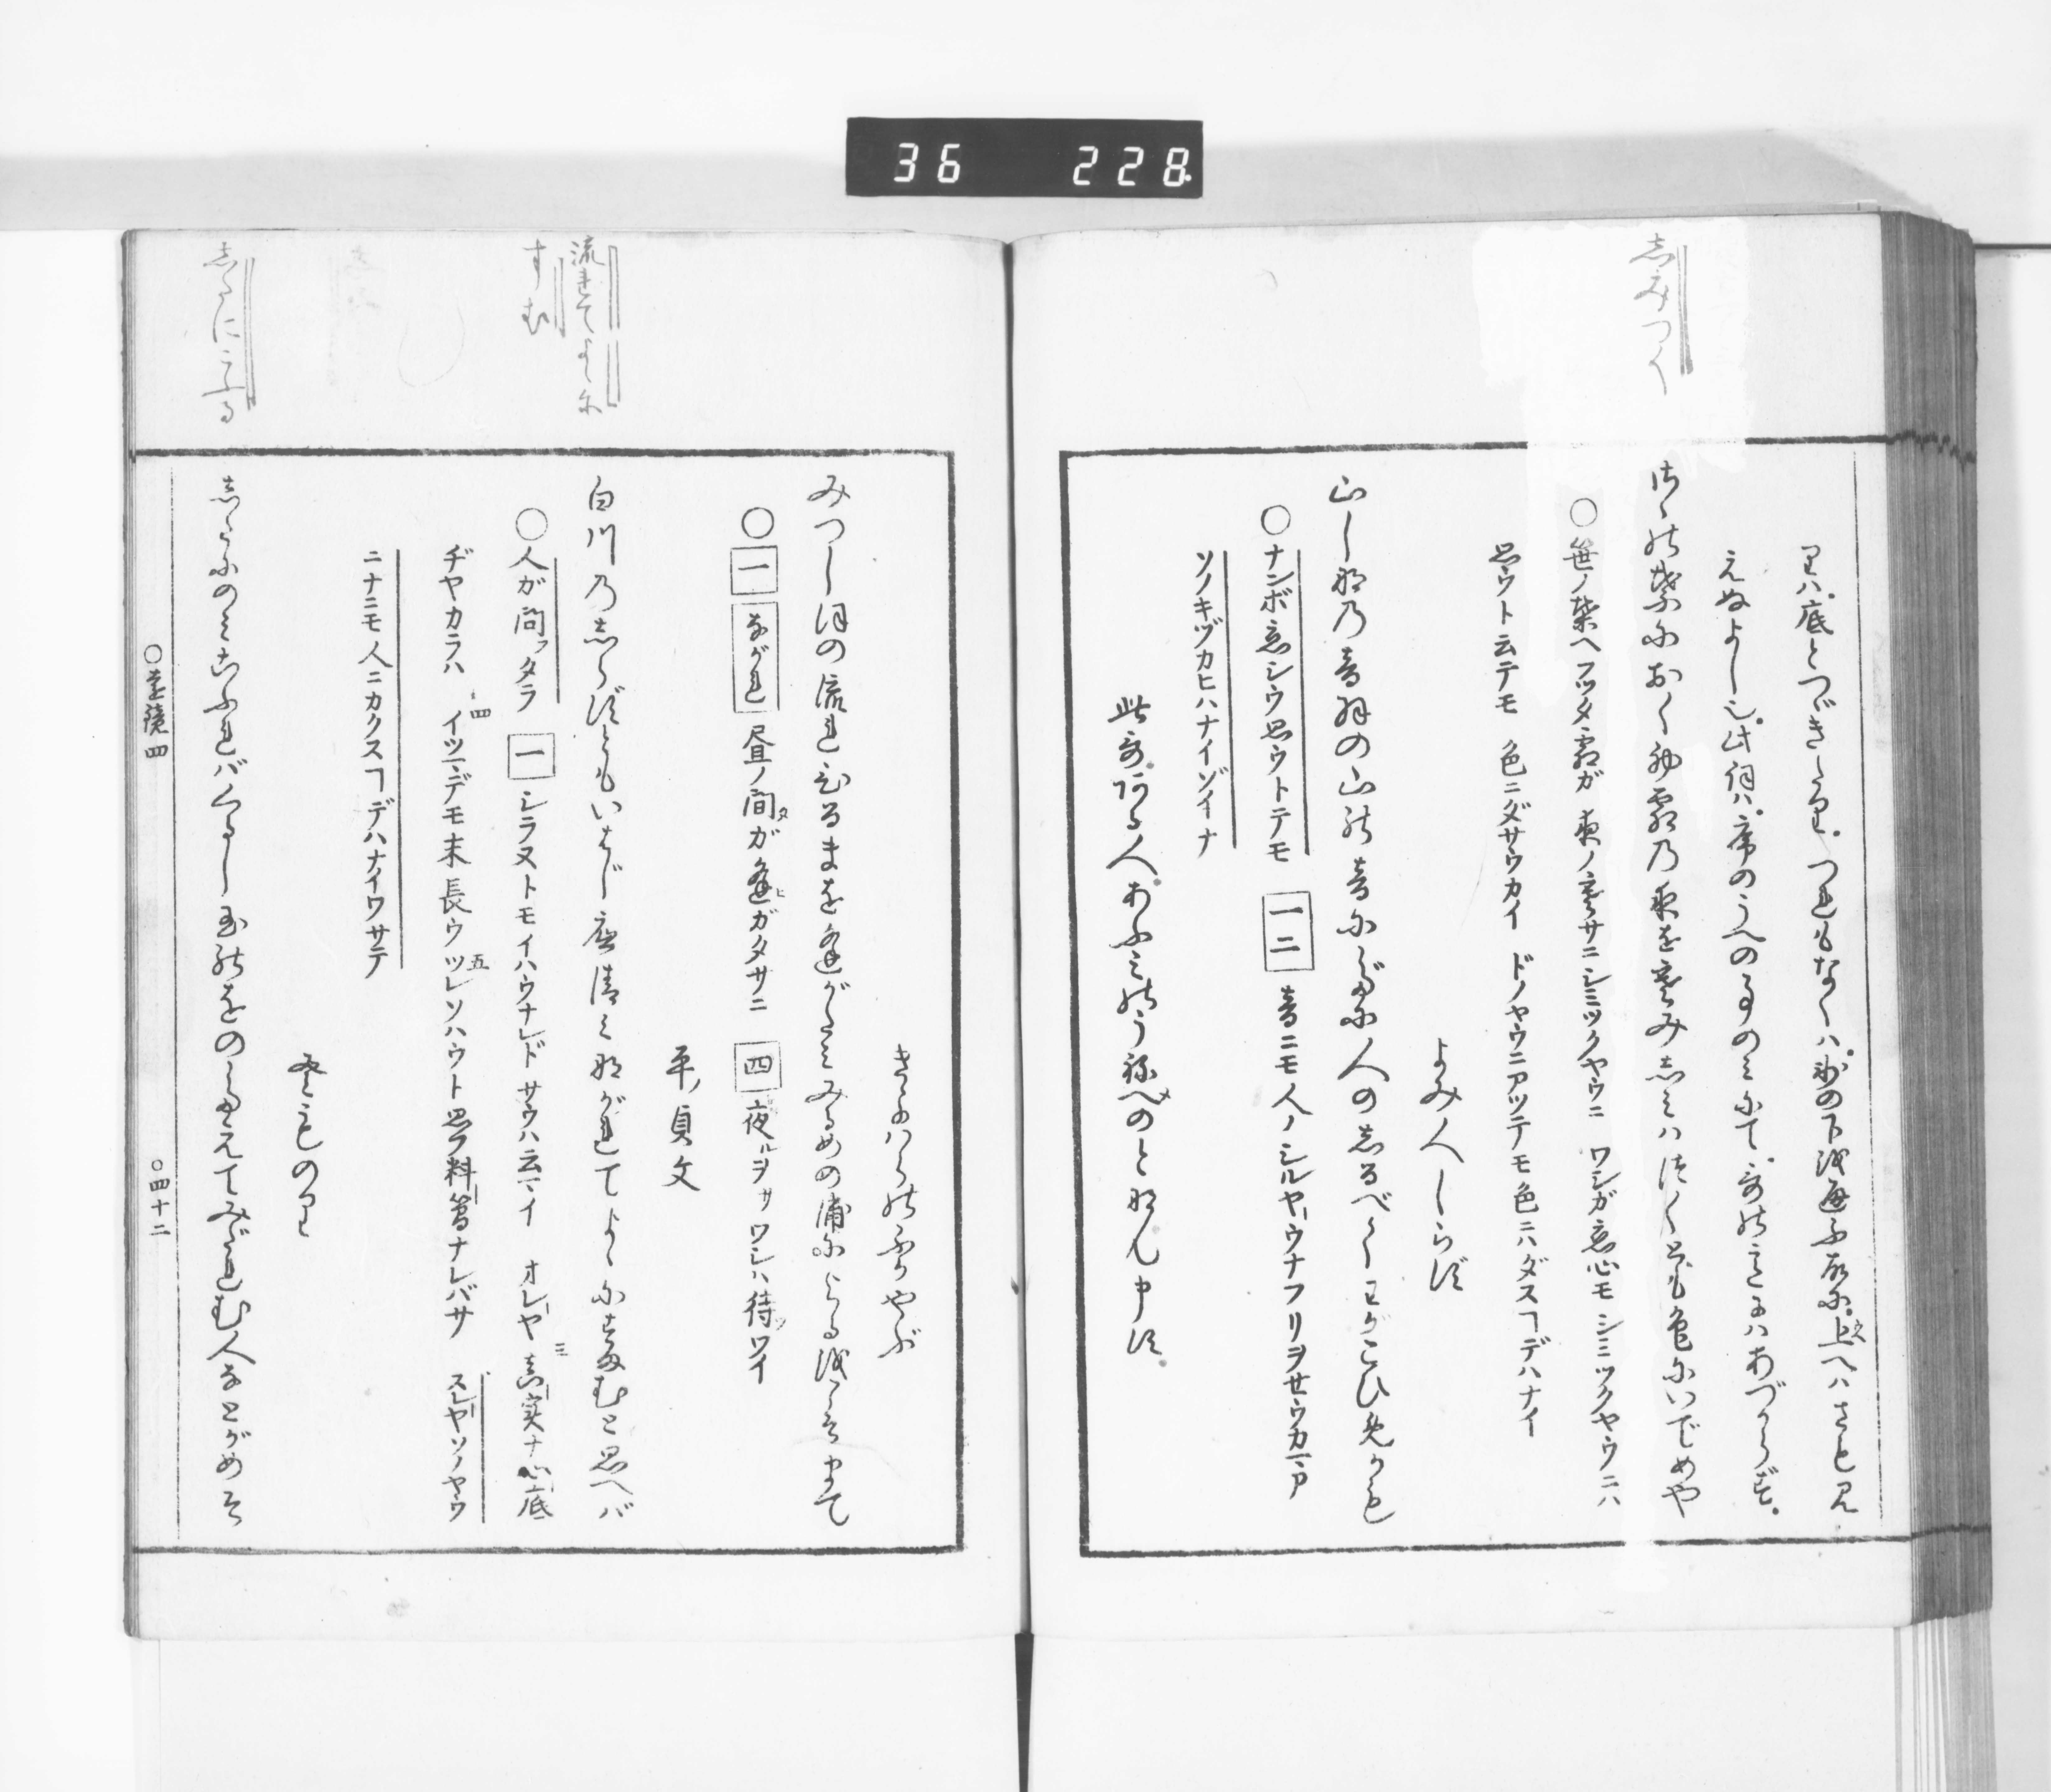 しみつく
りハ。底とつゞきたり。つれもなくハ。氷の下を通ふ故に。上へハさも見
えぬよし也。此詞ハ。序のうへの事のミにて。哥の意にハあづからず。
さゝの葉におく初霜の夜を寒みしミハつくとも色にいでめや
○笹ノ葉ヘフッタ霜ガ 夜ノ寒サニシミツクヤウニ ワシガ恋心モ シミツクヤウニハ
思ウト云テモ 色ニダサウカイ ドノヤウニアツテモ色ニハダスヿデハナイ
よみ人しらず
山しなの音羽の山の音にだに人のしるべくわがこひめかも
○ナンボ恋シウ思ウトテモ 一二 音ニモ人ノシルヤウナフリヲセウカマア
ソノキヅカヒハナイゾイナ
此哥ある人。あふミのうねべのとなん申す。
きよハらのふかやぶ
みつしほの流れひるまを逢がたミみるめの浦によるをこそまて
○一 ながれ 昼ノ間ガ逢ガタサニ 四 夜ルヲサワシハ待ワイ
平ノ貞文
流れてよゝに
すむ
白川のしらずともいはじ底清ミながれてよゝにすまむと思へバ
○人ガ問フタラ 一 シラヌトモイハウナレド サウハ云マイ オレヤ 三真実ナ心底
ヂヤカラハ 四イツマデモ末長ウ 五ツレソハウト思フ料簡ナレバサ スレヤソノヤウ
ニナニモ人ニカクスヿデハナイワサテ
とものり
したにこふる
したにのミこふれバくるし玉のをのたえてみだれむ人なとがめそ
○遠鏡四 ○四十二
36 228